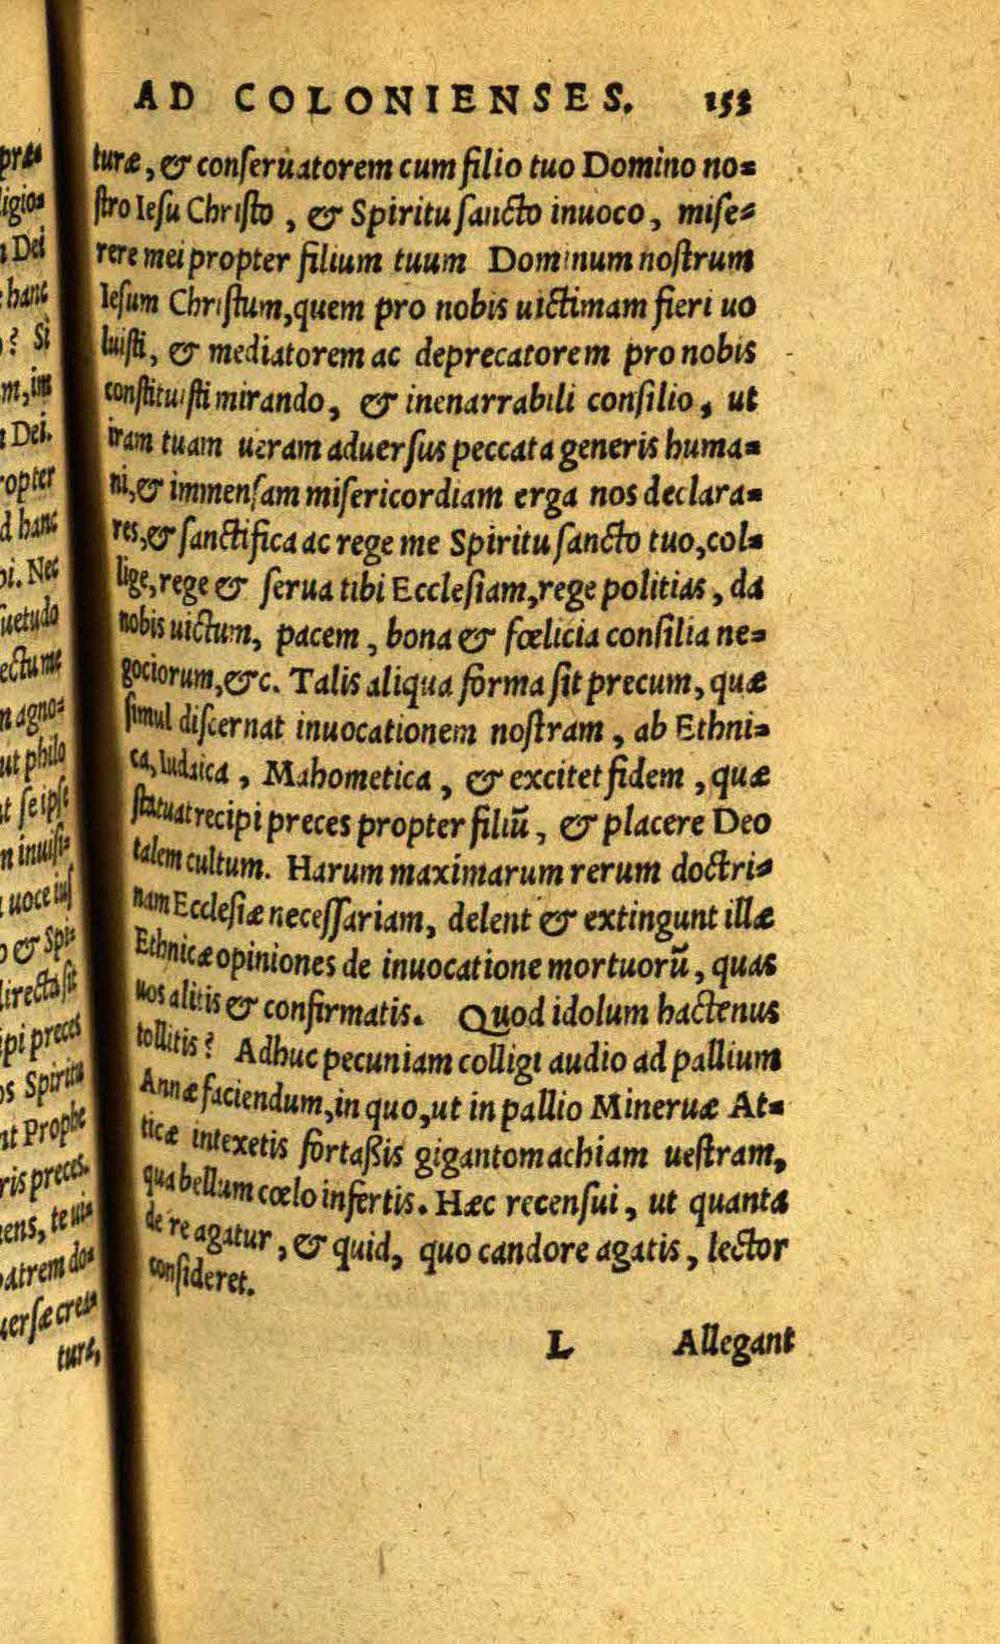 AD COLONIENSES. 153
turæ, & conseruatorem cum filio tuo Domino no=
stro Iesu Christo, & Spiritu sancto inuoco, mise=
rere mei propter filium tuum Dominum nostrum
Iesum Christum, quem pro nobis uictimam fieri uo
luisti, & mediatorem ac deprecatorem pro nobis
constituisti mirando, & inenarrabili consilio, ut
iram tuam ueram aduersus peccata generis huma=
ni, & immensam misericordiam erga nos declara=
res, & sanctifica ac rege me Spiritu sancto tuo, col=
lige, rege & serua tibi Ecclesiam, rege politias, da
nobis uictum, pacem, bona & fœlicia consilia ne=
gociorum, &c. Talis aliqua forma sit precum, quæ
simul discernat inuocationem nostram, ab Ethni=
ca, Iudaica, Mahometica, & excitet fidem, quæ
statuat recipi preces propter filiũ, & placere Deo
talem cultum. Harum maximarum rerum doctri=
nam Ecclesiæ necessariam, delent & extingunt illæ
Ethnicæ opiniones de inuocatione mortuorũ, quas
uos alitis & confirmatis. Quod idolum hactenus
tollitis? Adhuc pecuniam colligi audio ad pallium
Annæ faciendum, in quo, ut in pallio Mineruæ At=
ticæ intexetis fortaßis gigantomachiam uestram,
qua bellum cœlo infertis. Hæc recensui, ut quanta
de re agatur, & quid, quo candore agatis, lector
consideret.
L Allegant